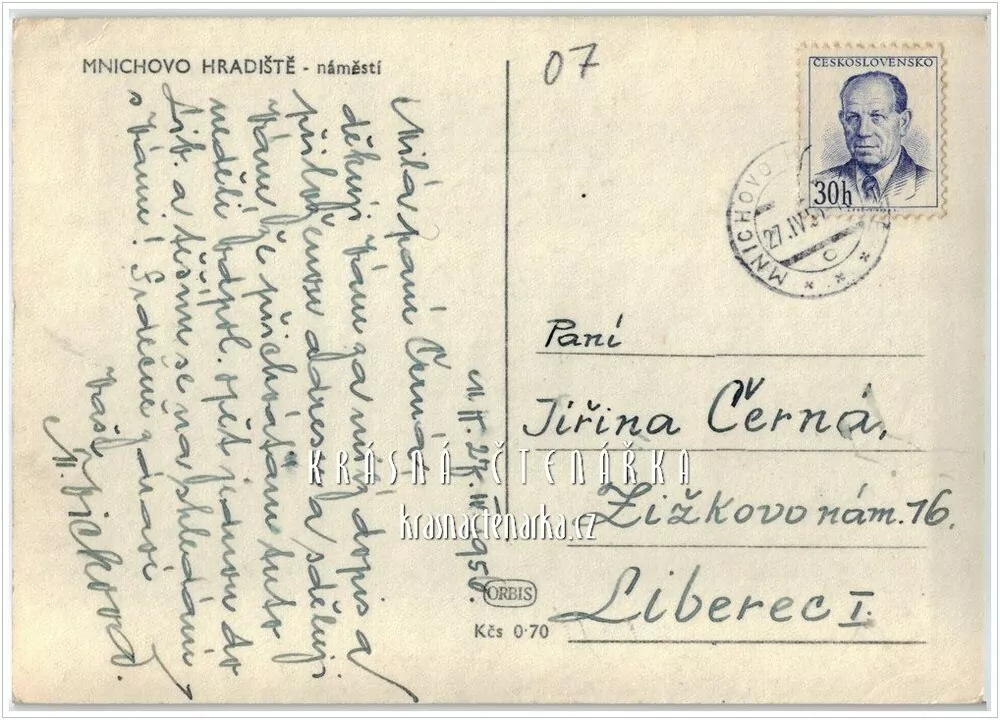 MNICHOVO HRADIŠTĚ - náměstí
07
ČESKOSLOVENSKO
30h
MNICHOVO H
27.IV.5
C
M.H. 27.IV.195
Milá paní Černá,
děkuji Vám za milý dopis a
přiloženou adresu a sděluji
Vám, že přichvátám tuto
neděli odpol. opět jednou do
Lib. a těším se na shledání
s Vámi! Srdečně zdraví
Vaše
Paní
Jiřina Černá,
Žižkovo nám. 16.
Liberec I.
KRÁSNÁ ČTENÁŘKA
krasnactenarka.cz
ORBIS
Kčs 0·70